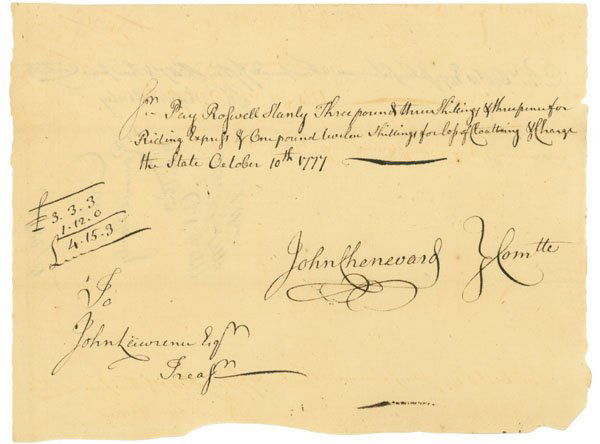 Sr Pay Roswell Stanly Three pound & three Shillings & three pence for
Riding Express & One pound twelve Shillings for loss of Coattning & Charge
the State October 10th 1777
£3.3.3
1.12.0
£4.15.3
John Chenevard } Comtte
To
John Lawrence Esqr
Treasr